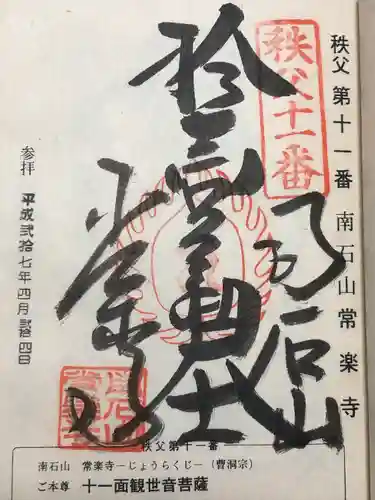 秩父 第十一番 南石山 常楽寺
秩父十一番
南石山
常楽寺
参拝 平成弐拾七年四月弐拾四日
秩父第十一番
南石山 常楽寺－じょうらくじ－（曹洞宗）
ご本尊 十一面観世音菩薩